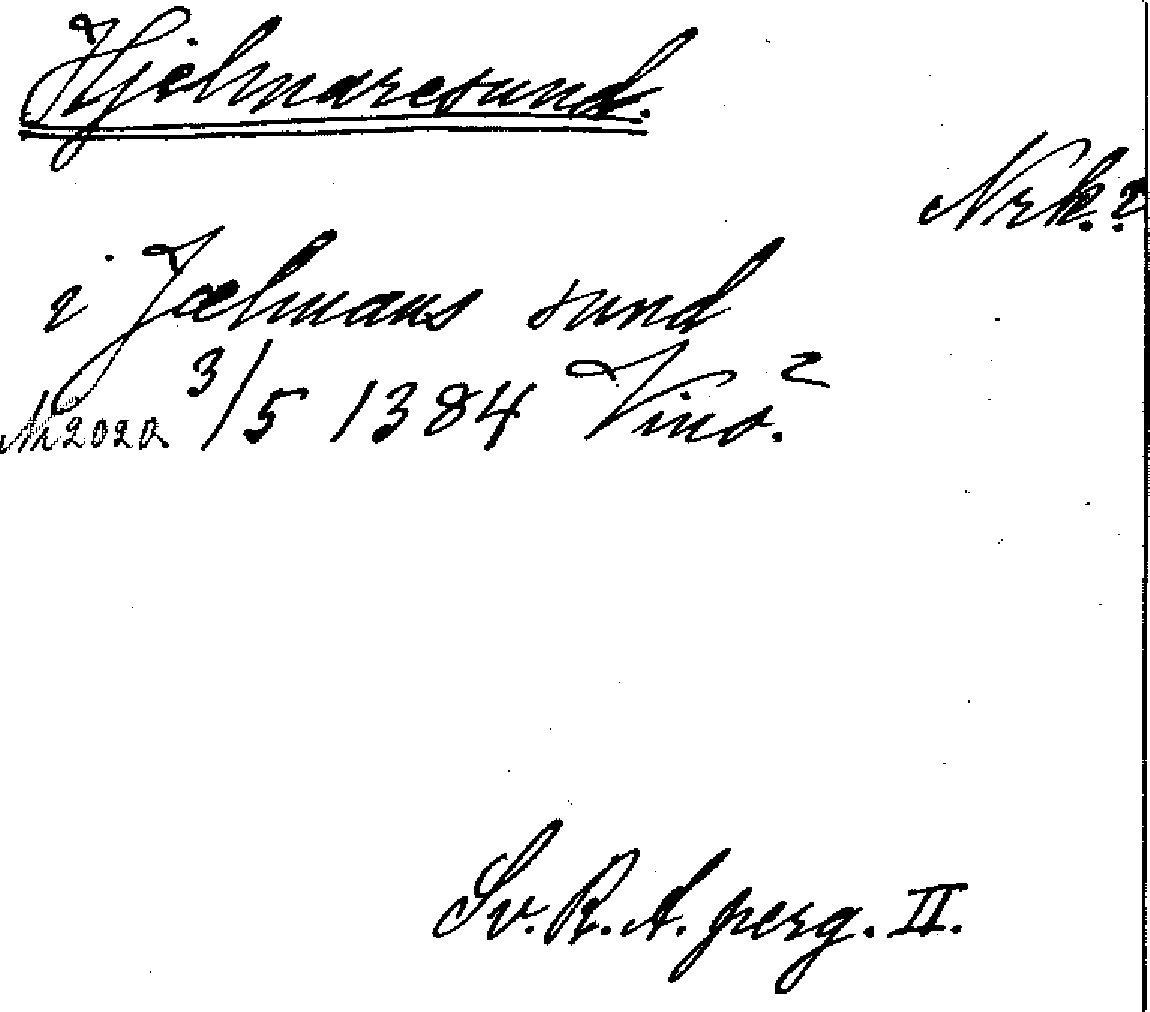 Hjelmaresund.
Nrk.?
i Jælmans sund
3/5 1384 Vinö.
Sv. R. A. perg. II.